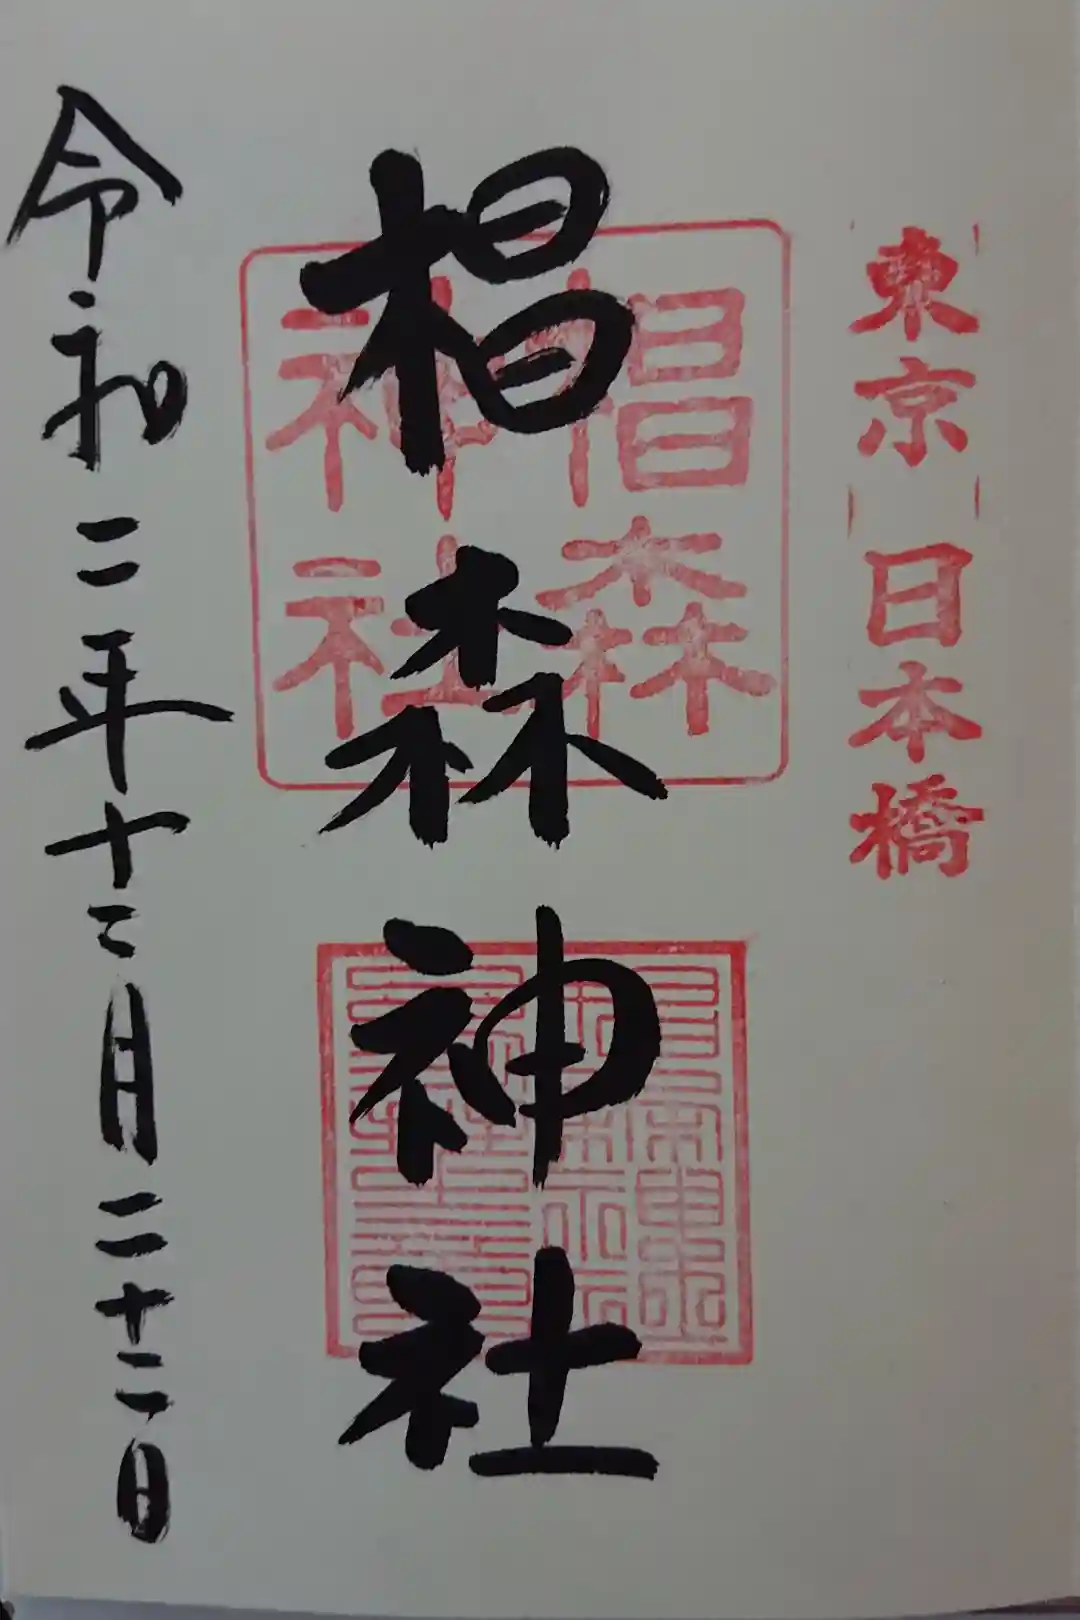 東京日本橋
椙森神社
椙森
神社
令和二年十二月二十二日